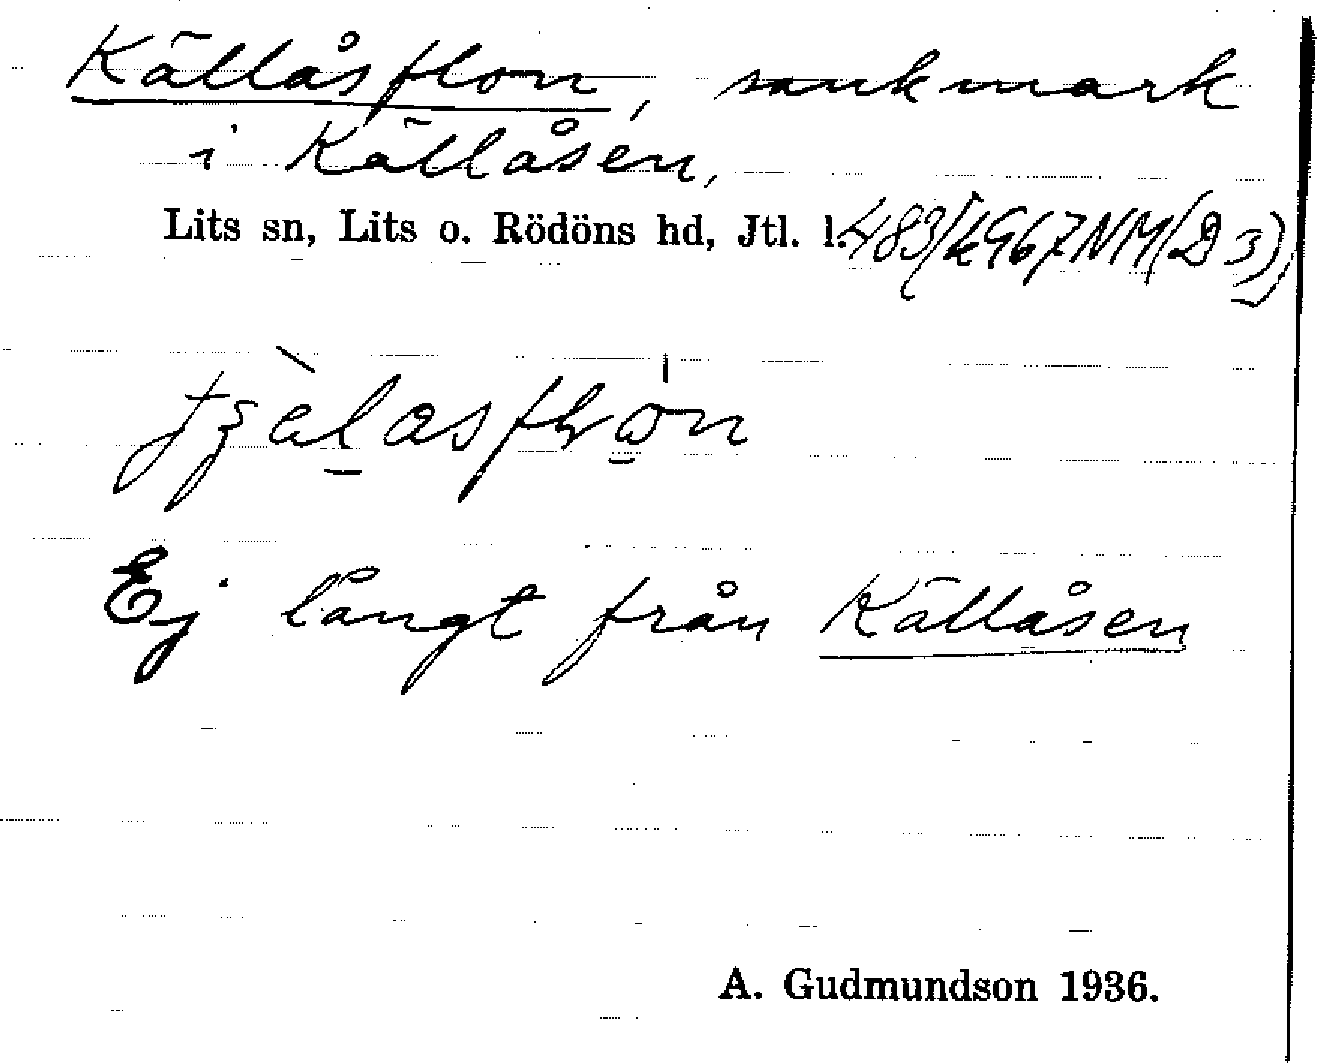 Källåsflon, sankmark
i Källåsen,
Lits sn, Lits o. Rödöns hd, Jtl. l.
Ej långt från Källåsen
A. Gudmundson 1936.